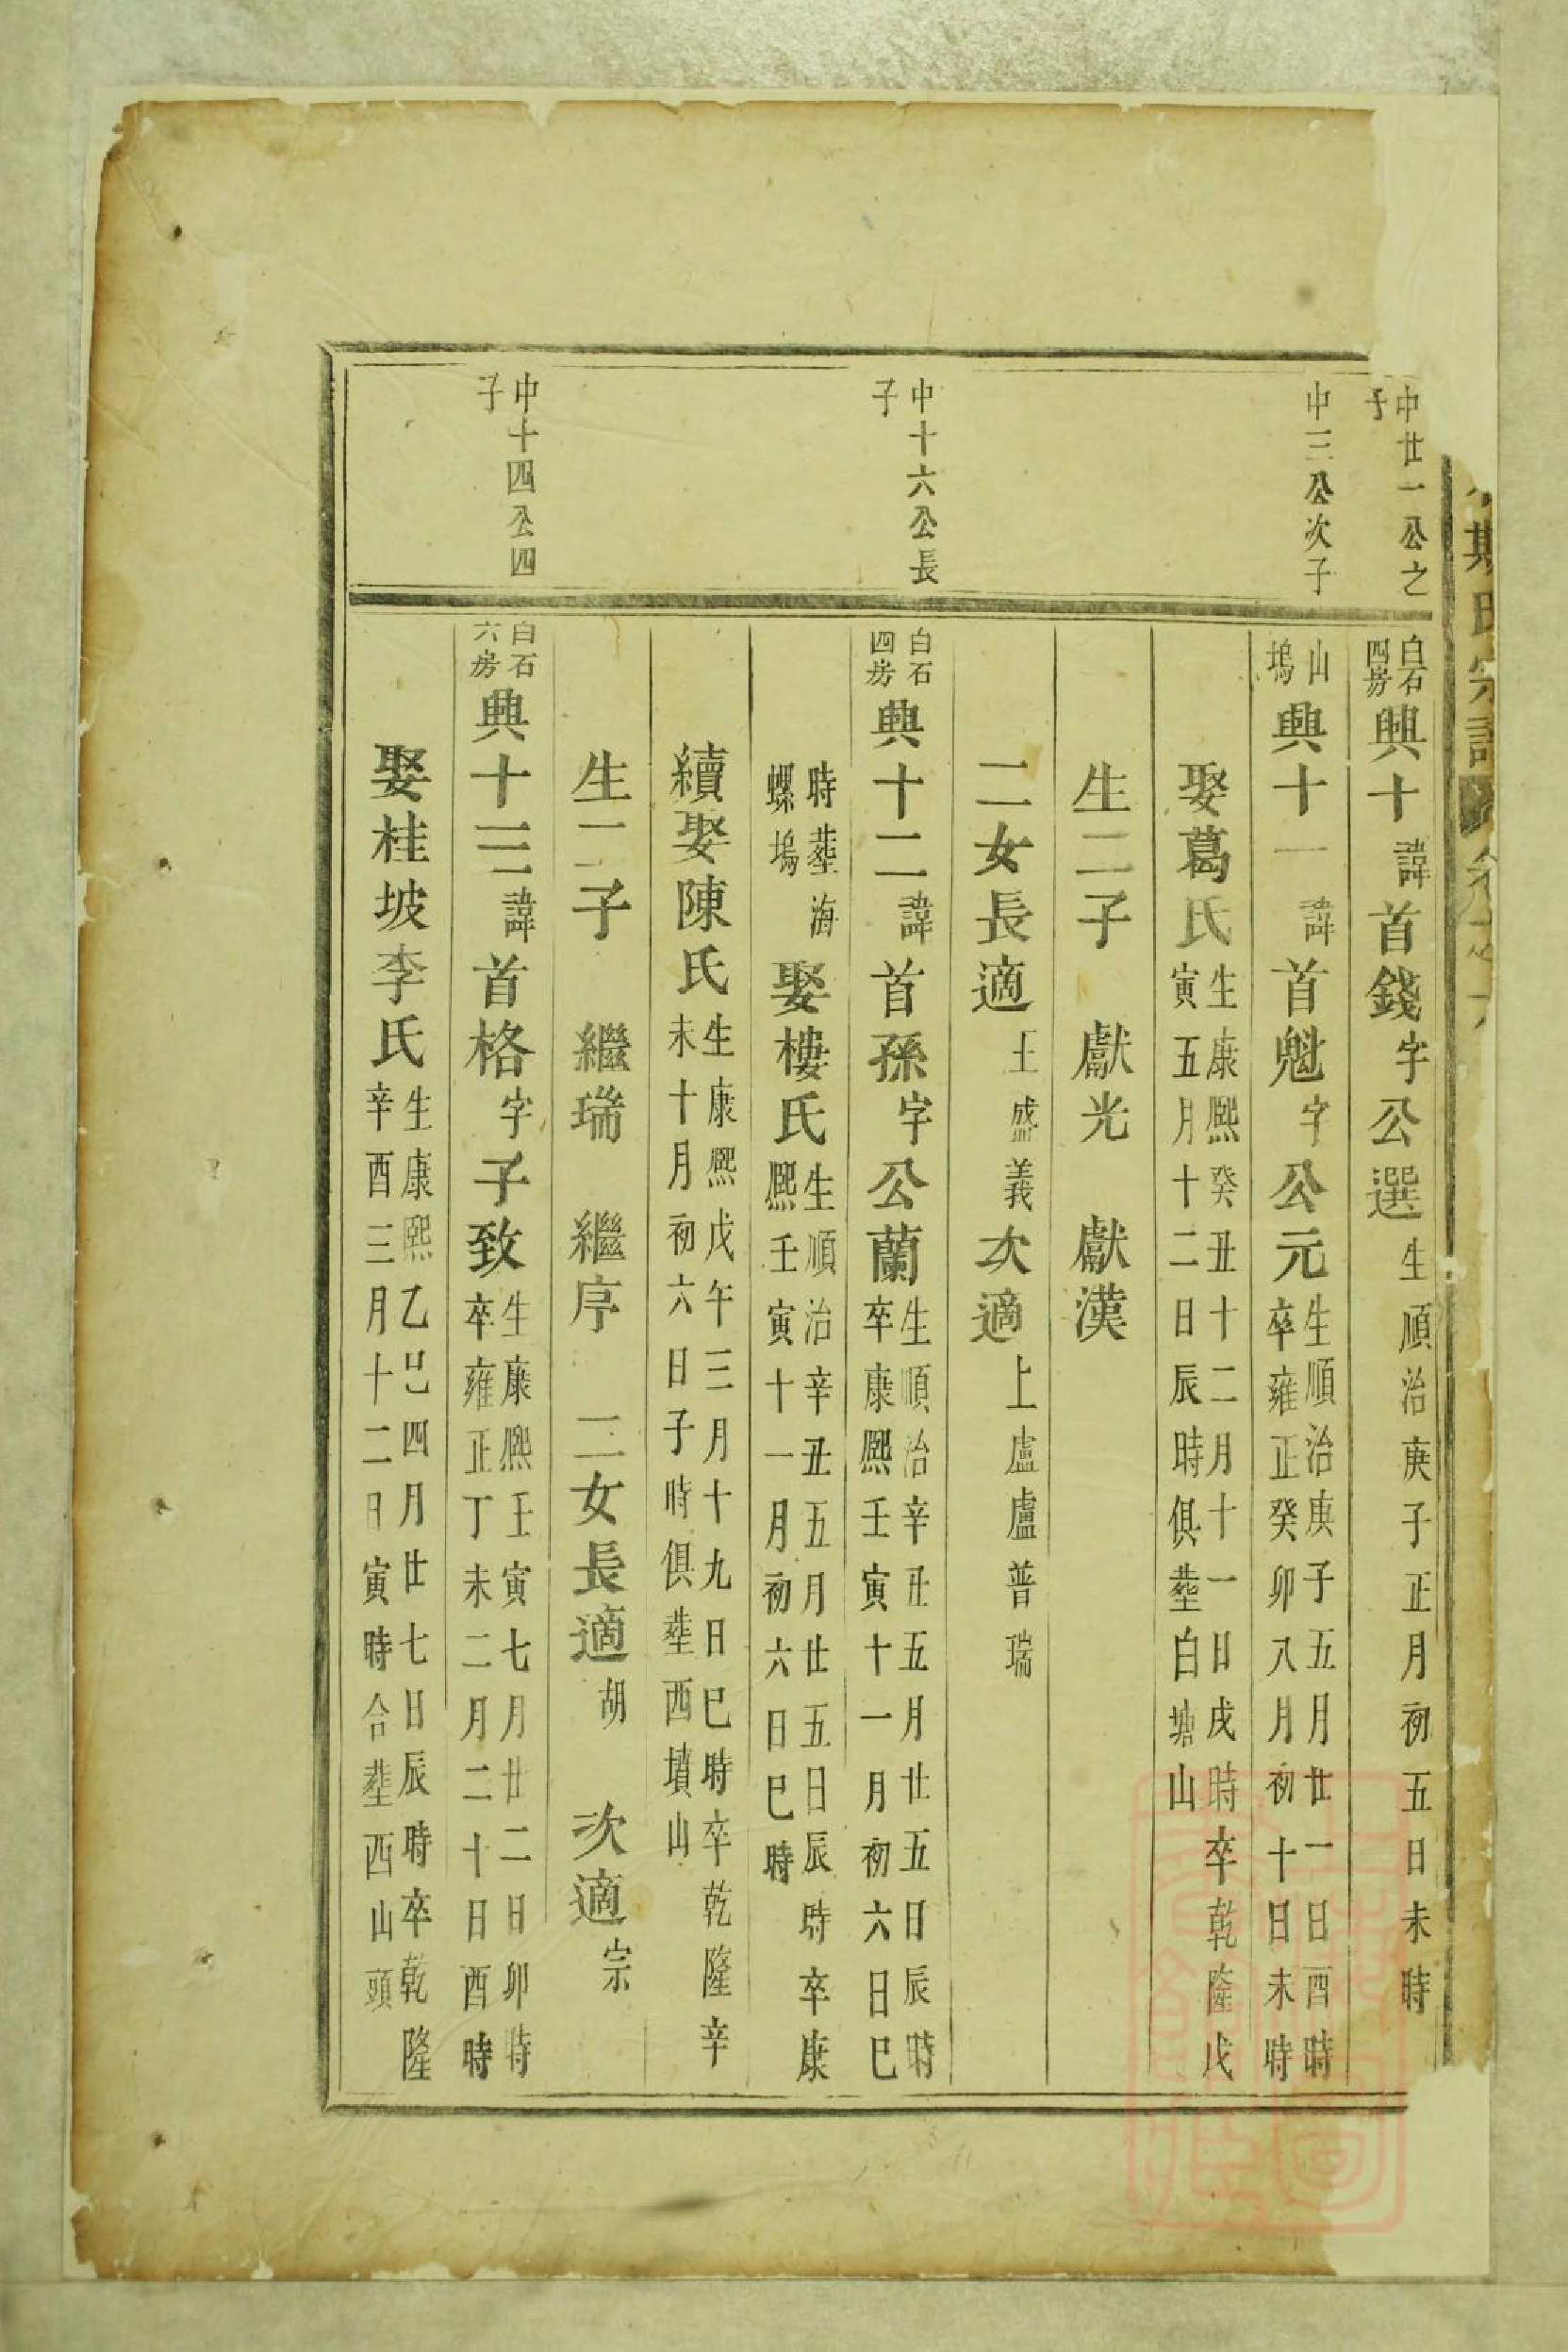 斯氏宗譜
中廿一公之
子
白石
四房
興十諱首錢字公選生順治庚子正月初五日未時
中三公次子
山
塢
興十一諱首魁字公元
生順治庚子五月廿一日酉時
卒雍正癸卯八月初十日未時
娶葛氏
生康熙癸丑十二月十一日戌時卒乾隆戊
寅五月十二日辰時俱塟白塘山
生二子 獻光 獻漢
二女長適王盛義次適上盧盧普瑞
中十六公長
子
白石
四房
興十二諱首孫字公蘭
生順治辛丑五月廿五日辰時
卒康熙壬寅十一月初六日巳
時塟海
螺塢
娶樓氏
生順治辛丑五月廿五日辰時卒康
熙壬寅十一月初六日巳時
續娶陳氏
生康熙戊午三月十九日巳時卒乾隆辛
未十月初六日子時俱塟西墳山
生二子 繼瑞 繼序 二女長適胡 次適宗
中十四公四
子
白石
六房
興十三諱首格字子致
生康熙壬寅七月廿二日卯時
卒雍正丁未二月二十日酉時
娶桂坡李氏
生康熙乙巳四月廿七日辰時卒乾隆
辛酉三月十二日寅時合塟西山頭